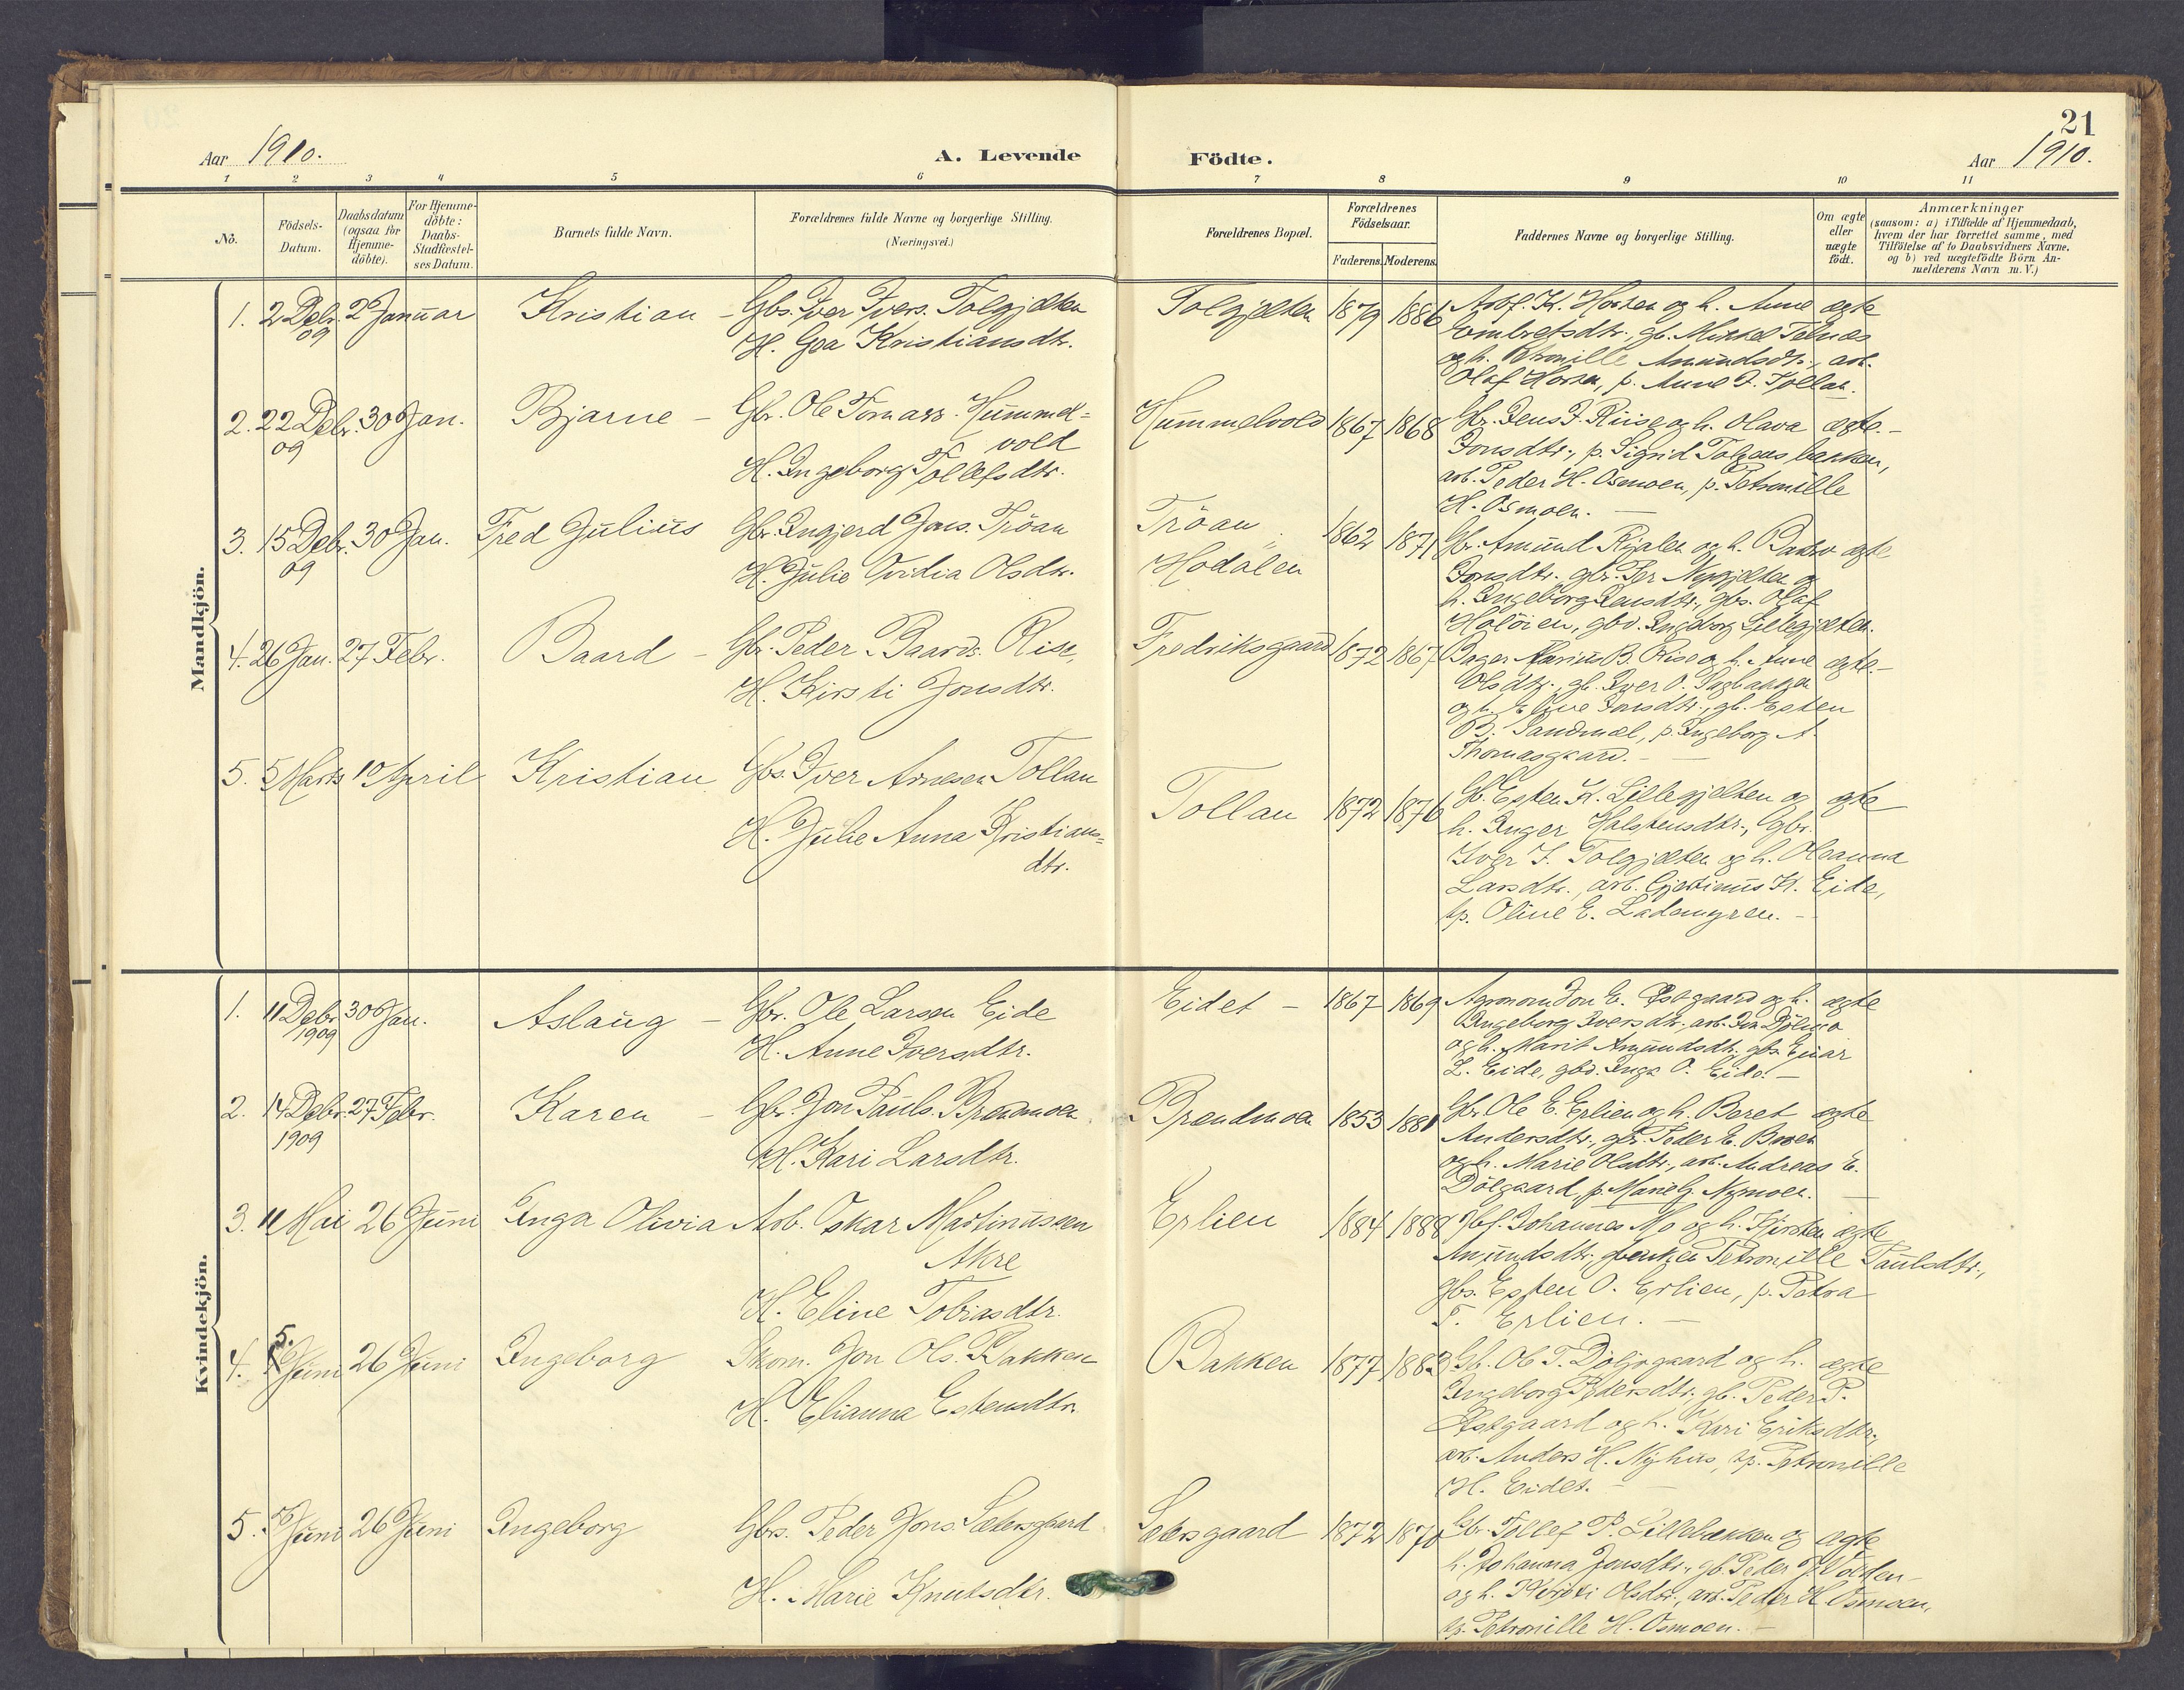 21
Aar 1910.
A. Levende Födte.
Aar 1910.
1 2 3 4 5 6 7 8 9 10 11
No.
Födsels-
Datum.
Daabsdatum
(ogsaa for
Hjemme-
döbte).
For Hjemme-
döbte:
Daabs-
Stadfæstel-
ses Datum.
Barnets fulde Navn.
Forældrenes fulde Navne og borgerlige Stilling.
(Næringsvei.)
Forældrenes Bopæl.
Forældrenes
Födselsaar.
Faderens. Moderens.
Faddernes Navne og borgerlige Stilling.
Om ægte
eller
uægte
födt.
Anmærkninger
(saasom: a) i Tilfælde af Hjemmedaab,
hvem der har forrettet samme, med
Tilföielse af to Daabsvidners Navne,
og b) ved uægtefödte Börn An-
melderens Navn m. V.)
Mandkjön.
1. 2 Debr. 09 2 Januar Kristian – Gbs. Iver Ivers. Tolgjelten
H. Goa Kristiansdtr.
Tolgjelten 1879 1886 K. Horten og h. Anne ægte
Embretsdtr., gb. Mikkel Telnes
og h. Petronille Amundsdtr., arb.
Olaf Horten, p. Anne I. Tollan.
2. 22 Debr. 09 30 Jan. Bjarne – Gbr. Ole Tomass. Hummel=
vold
H. Ingeborg Tollefsdtr.
Hummelvold 1867 1868 Gbr. Jens J. Riise og h. Olava ægte. –
Jonsdtr., p. Sigrid Tolgensbakken,
arb. Peder H. Osmoen, p. Petronille
H. Osmoen. –
3. 15 Debr. 09 30 Jan. Fred Julius Gbr. Ingjerd Jons. Tröan
H. Julie Ovidia Olsdtr.
Tröan
Hodalen
1862 1871 Gbr. Amund og h. ægte
Jonsdtr. gbr. Per Nygjelten og
h. Ingeborg Jensdtr., gbs. Olaf
Holöien, gbd. Ingeborg Lillegjelten.
4. 26 Jan. 27 Febr. Baard – Gbr. Peder Baards. Rise,
H. Kirsti Jonsdtr.
Fredriksgaard 1872 1867 Bager Marius B. Rise og h. Anne ægte. –
Olsdtr., gb. Iver O.
og h. Eline Jonsdtr., gb. Esten
B. Sandmæl, p. Ingeborg A.
Thomasgaard. –
5. 5 Marts 10 April Kristian Gbs. Iver Arnesen Tollan
H. Julie Anna Kristians=
dtr.
Tollan 1872 1876 Gb. Esten K. Lillegjelten og ægte
h. Inger Halstensdtr., gbr.
Iver I. Tolgjelten og h. Oleanna
Larsdtr., arb. K. Eide,
p. Oline E. Lademyren. –
Kvindekjön.
1. 11 Debr. 1909 30 Jan. Aslaug – Gbr. Ole Larsen Eide
H. Anne Iversdtr.
Eidet – 1867 1869 Agronom Jon E. Østgaard og h. ægte
Ingeborg Iversdtr., arb. Dölmo
og h. Marit Amundsdtr., gbs. Einar
L. Eide, gbd. Inga O. Eide. –
2. 14 Debr. 1909 27 Febr. Karen – Gbr. Jon Pauls. Brendmoen
H. Kari Larsdtr.
Brendmoen 1853 1881 Gbr. Ole E. Erlien og h. Beret ægte
Andersdtr., gbr. Peder E.
og h. Marie Olsdtr., arb. Andreas E.
Dölgaard, p. Marie J. Nymoen. –
3. 11 Mai 26 Juni Inga Olivia Arb. Oskar Martinussen
Akre
H. Eline Tobiasdtr.
Erlien 1884 1888 Johannes Mo og h. Kjirsten ægte
Amundsdtr., enken Petronille Paulsdtr.,
gbs. Esten O. Erlien, p. Petra
T. Erlien. –
4. 5. Juni 26 Juni Ingeborg Skom. Jon Ols. Bakken
H. Elianna Estensdtr.
Bakken 1877 1883 Gb. Ole T. Döljogaard og h. ægte
Ingeborg Pedersdtr., gb. Peder P.
Østgaard og h. Kari Eriksdtr.,
arb. Anders H. Nyhus, p. Petronille
H. Eidet. –
5. Juni 26 Juni Ingeborg Gbs. Peder Jons. Sætersgaard
H. Marie Knutsdtr.
Sætersgaard 1872 1870 Gbr. Tollef P. Lillebækken og ægte
h. Johanna Jonsdtr., gb. Peder J. Volden
og h. Kirsti Olsdtr., arb. Peder H. Osmoen,
p. Petronille H. Osmoen. –